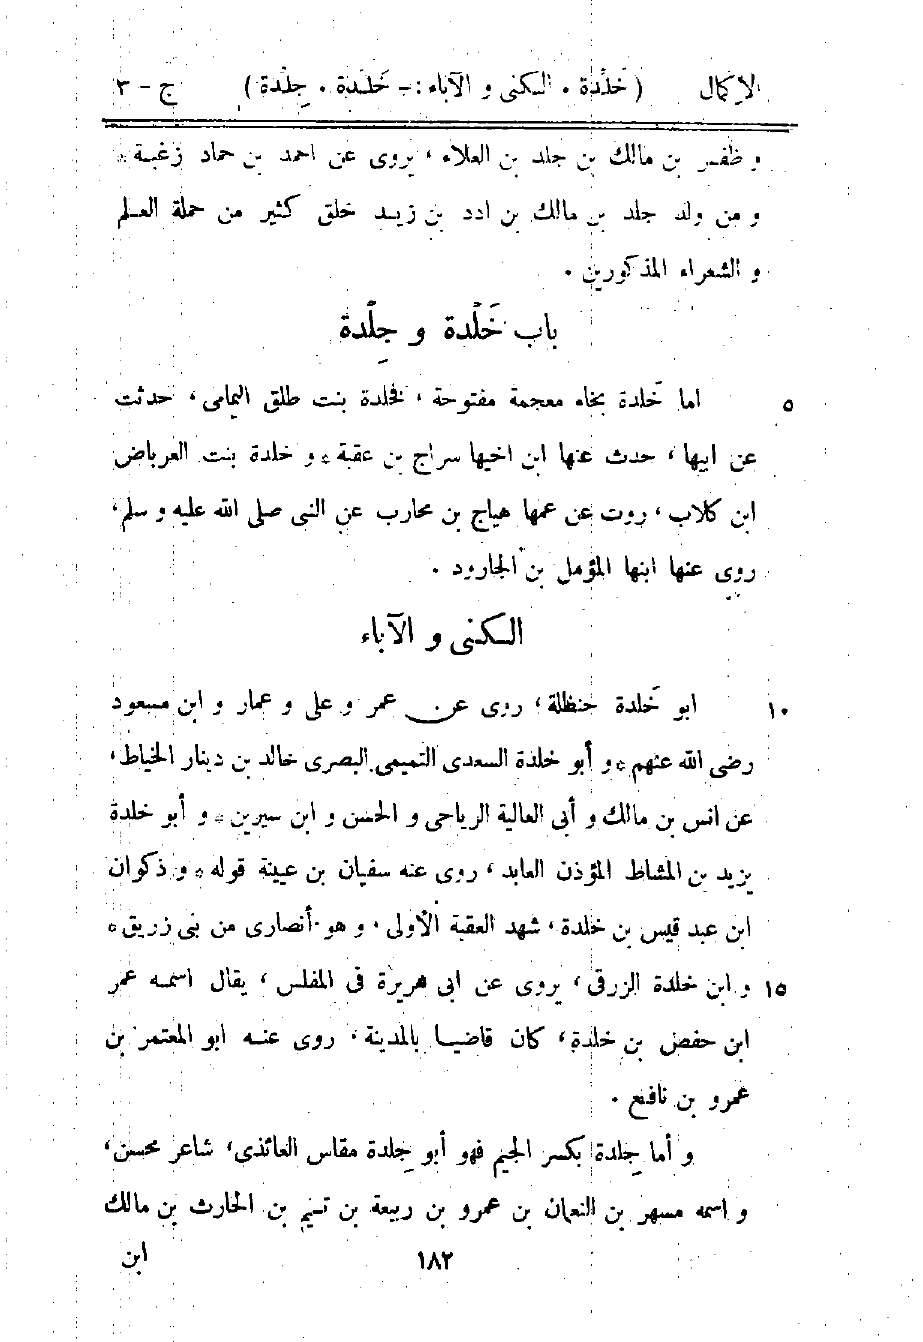 الإكمال ( خَلْدة . الكنى و الآباء :- خَلدة . جِلْدة ) ج - ٣
و ظفر بن مالك بن جلد بن العلاء ، يروى عن احمد بن حماد زغبة *
و من ولد جلد بن مالك بن ادد بن زيد خلق كثير من حملة العلم
و الشعراء المذكورين .
باب خَلْدة و جِلْدة
٥ اما خَلدة بخاء معجمة مفتوحة ، فخلدة بنت طلق اليمامى ، حدثت
عن ابيها ، حدث عنها ابن اخيها سراج بن عقبة * و خلدة بنت العرباض
ابن كلاب ، روت عن عمها هياج بن محارب عن النبى صلى الله عليه و سلم ،
روى عنها ابنها المؤمل بن الجارود .
الكنى و الآباء
١٠ ابو خَلدة حنظلة ، روى عن عمر و على و عمار و ابن مسعود
رضى الله عنهم * و أبو خلدة السعدى التميمى البصرى خالد بن دينار الخياط ،
عن انس بن مالك و أبى العالية الرياحى و الحسن و ابن سيرين * و أبو خلدة
يزيد بن المشاط المؤذن العابد ، روى عنه سفيان بن عيينة قوله * و ذكوان
ابن عبد قيس بن خلدة ، شهد العقبة الأولى ، و هو أنصارى من بنى زريق *
١٥ و ابن خلدة الزرقى ، يروى عن ابى هريرة فى المفلس ، يقال اسمه عمر
ابن حفص بن خلدة ، كان قاضيا بالمدينة ، روى عنه ابو المعتمر بن
عمرو بن نافع .
و أما جِلدة بكسر الجيم فهو أبو جِلدة مقاس العائذى ، شاعر محسن ،
و اسمه مسهر بن النعمان بن عمرو بن ربيعة بن تيم بن الحارث بن مالك
١٨٢ ابن